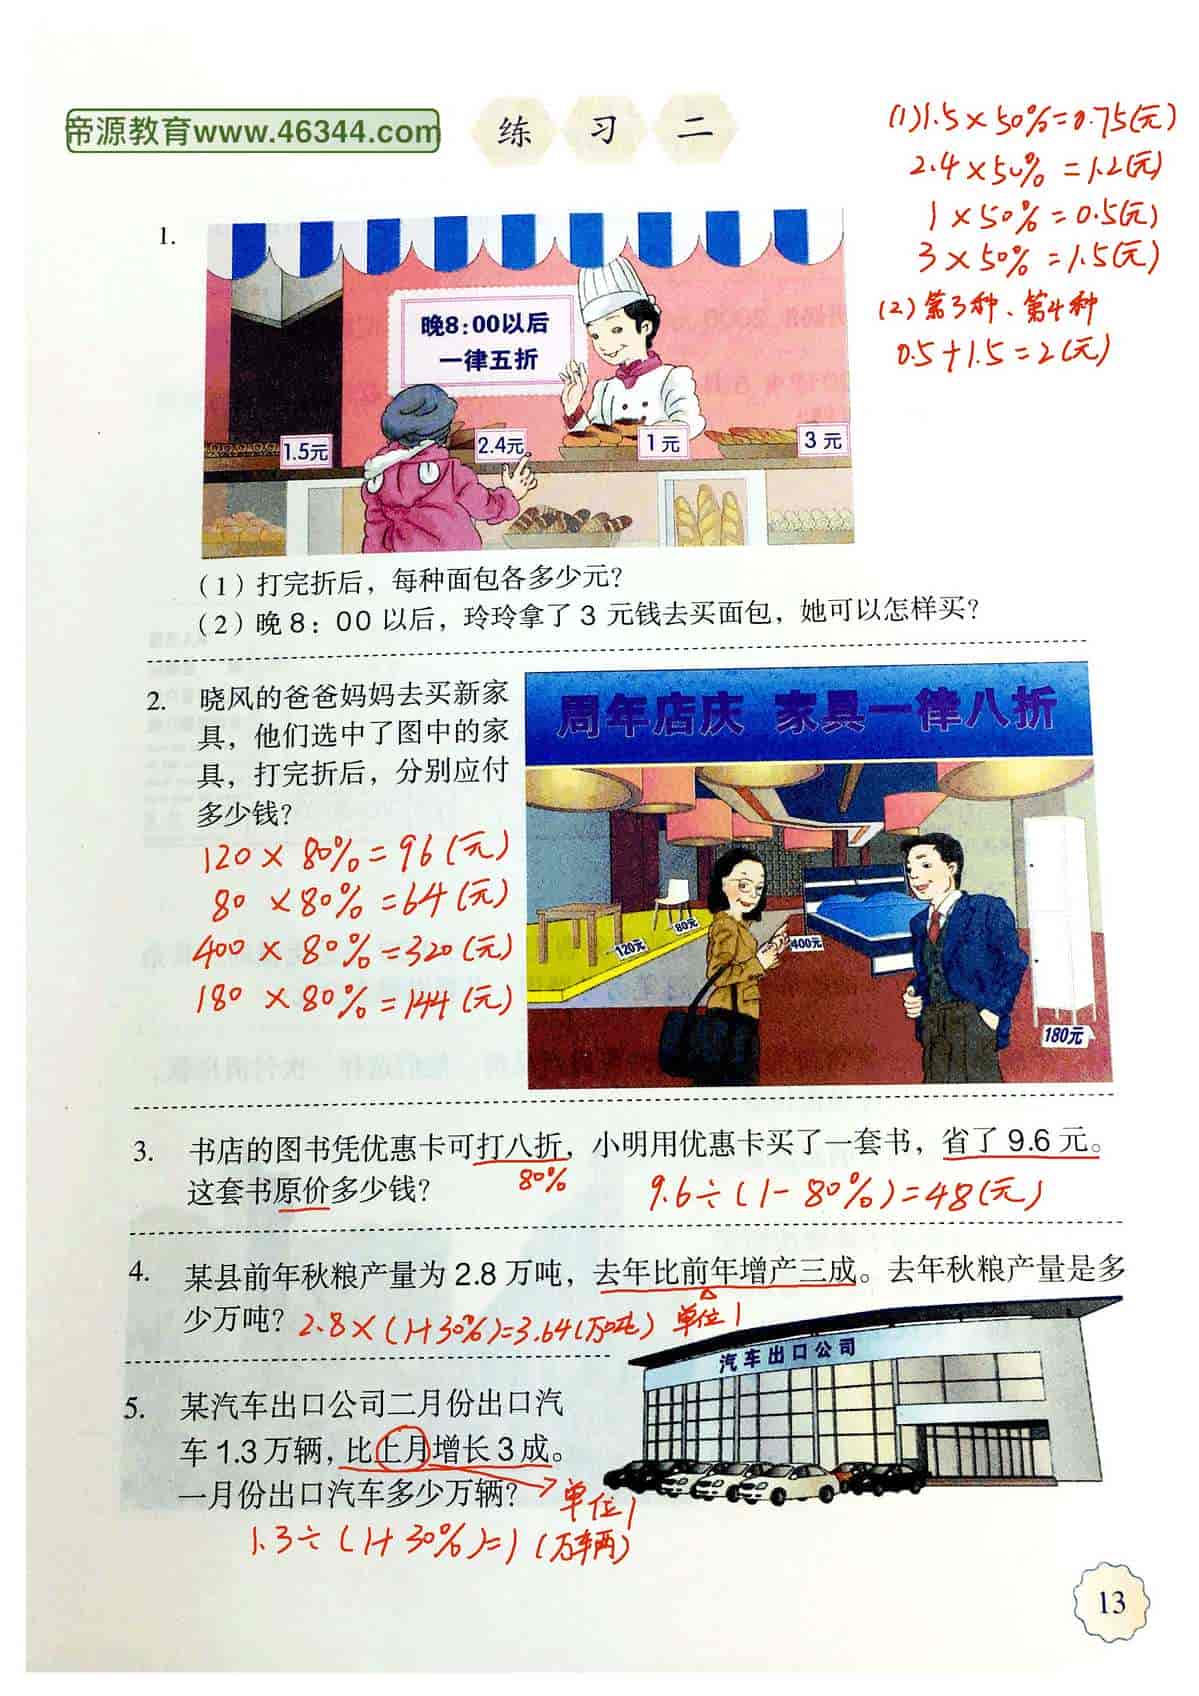 帝源教育www.46344.com
练 习 二
(1)1.5×50%=0.75(元)
2.4×50%=1.2(元)
1×50%=0.5(元)
3×50%=1.5(元)
(2)第3种、第4种
0.5+1.5=2(元)
1.
晚8:00以后
一律五折
1.5元
2.4元
1元
3元
（1）打完折后，每种面包各多少元？
（2）晚8：00以后，玲玲拿了3元钱去买面包，她可以怎样买？
2.
晓风的爸爸妈妈去买新家
具，他们选中了图中的家
具，打完折后，分别应付
多少钱？
120×80%=96(元)
80×80%=64(元)
400×80%=320(元)
180×80%=144(元)
周年店庆 家具一律八折
120元
80元
400元
180元
3. 书店的图书凭优惠卡可打八折，小明用优惠卡买了一套书，省了9.6元。
这套书原价多少钱？
80%
9.6÷(1-80%)=48(元)
4. 某县前年秋粮产量为2.8万吨，去年比前年增产三成。去年秋粮产量是多
少万吨？
2.8×(1+30%)=3.64(万吨)
单位1
汽车出口公司
5. 某汽车出口公司二月份出口汽
车1.3万辆，比上月增长3成。
一月份出口汽车多少万辆？
单位1
1.3÷(1+30%)=1(万辆)
13